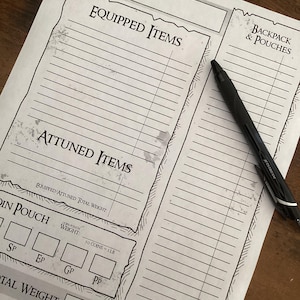 Equipped Items
Backpack
& Pouches
Attuned Items
Equipped/Attuned Total Weight
oin Pouch
Weight:
Sp
Ep
Gp
Pp
tal Weight